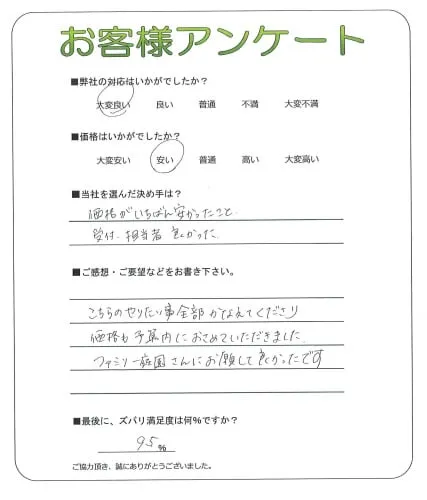 お客様アンケート
■弊社の対応はいかがでしたか?
大変良い 良い 普通 不満 大変不満
■価格はいかがでしたか?
大変安い 安い 普通 高い 大変高い
■当社を選んだ決め手は?
価格がいちばん安かったこと.
受付.担当者 良かった.
■ご感想・ご要望などをお書き下さい。
こちらのやりたい事全部かなえてくださり
価格も予算内におさめていただきました.
ファミリー庭園さんにお願して良かったです
■最後に、ズバリ満足度は何%ですか?
95%
ご協力頂き、誠にありがとうございました。